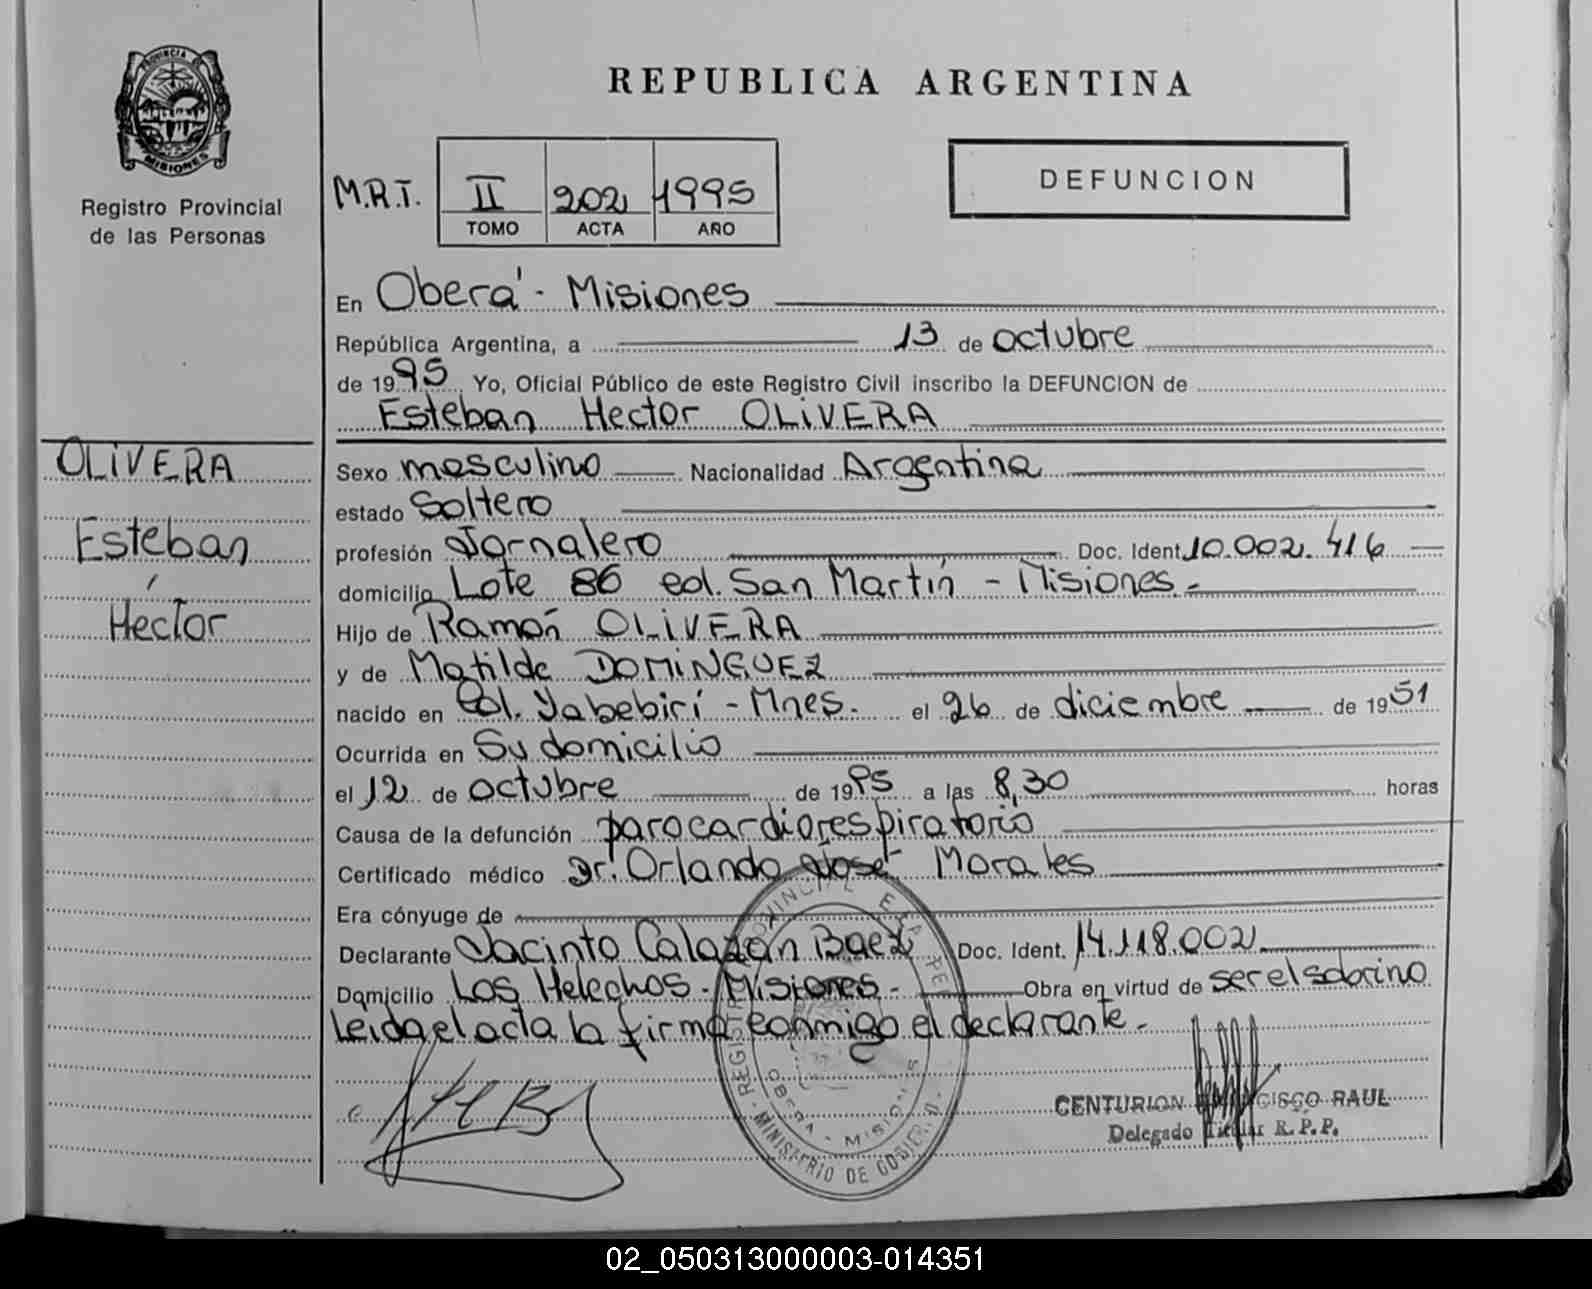 PROVINCIA DE
MISIONES
Registro Provincial
de las Personas
OLIVERA
Esteban
Héctor
REPUBLICA ARGENTINA
M.R.T. II 202 1995
TOMO ACTA AÑO
DEFUNCION
En Oberá - Misiones
República Argentina, a 13 de octubre
de 1995 Yo, Oficial Público de este Registro Civil inscribo la DEFUNCION de
Esteban Hector OLIVERA
Sexo masculino Nacionalidad Argentina
estado Soltero
profesión Jornalero Doc. Ident. 10.002.416
domicilio Lote 86 col. San Martín - Misiones.-
Hijo de Ramón OLIVERA
y de Matilde DOMINGUEZ
nacido en Col. Yabebirí - Mnes. el 26 de diciembre de 1951
Ocurrida en Su domicilio
el 12 de octubre de 1995 a las 8,30 horas
Causa de la defunción parocardiorespiratorio
Certificado médico Dr. Orlando José Morales
Era cónyuge de
Declarante Jacinto Calazan Baez Doc. Ident. 14.118.002
Domicilio Los Helechos - Misiones - Obra en virtud de ser el sobrino
Leida el acta la firma conmigo el declarante.-
REGISTRO PROVINCIAL DE LA PER
OBERA - MISIONES
MINISTERIO DE GOBIERNO
CENTURION FRANCISCO RAUL
Delegado Titular R. P. P.
02_050313000003-014351